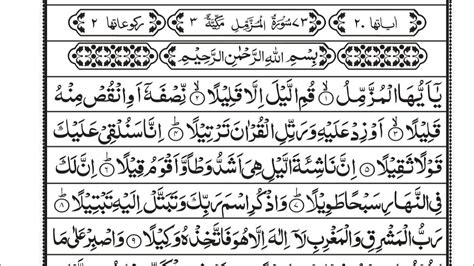 اٰیاتها ٢٠ ٧٣ سُوْرَةُ الْمُزَّمِّلِ مَکِّیَّةٌ ٣ رکوعاتها ٢
بِسْمِ اللّٰهِ الرَّحْمٰنِ الرَّحِیْمِ
یٰۤاَیُّهَا الْمُزَّمِّلُ ۙ﴿۱﴾ قُمِ الَّیْلَ اِلَّا قَلِیْلًا ۙ﴿۲﴾ نِّصْفَهٗۤ اَوِ انْقُصْ مِنْهُ
قَلِیْلًا ۙ﴿۳﴾ اَوْ زِدْ عَلَیْهِ وَ رَتِّلِ الْقُرْاٰنَ تَرْتِیْلًا ؕ﴿۴﴾ اِنَّا سَنُلْقِیْ عَلَیْكَ
قَوْلًا ثَقِیْلًا ﴿۵﴾ اِنَّ نَاشِئَةَ الَّیْلِ هِیَ اَشَدُّ وَطْاً وَّ اَقْوَمُ قِیْلًا ؕ﴿۶﴾ اِنَّ لَكَ
فِی النَّهَارِ سَبْحًا طَوِیْلًا ؕ﴿۷﴾ وَ اذْكُرِ اسْمَ رَبِّكَ وَ تَبَتَّلْ اِلَیْهِ تَبْتِیْلًا ؕ﴿۸﴾
رَبُّ الْمَشْرِقِ وَ الْمَغْرِبِ لَاۤ اِلٰهَ اِلَّا هُوَ فَاتَّخِذْهُ وَكِیْلًا ﴿۹﴾ وَ اصْبِرْ عَلٰی مَا